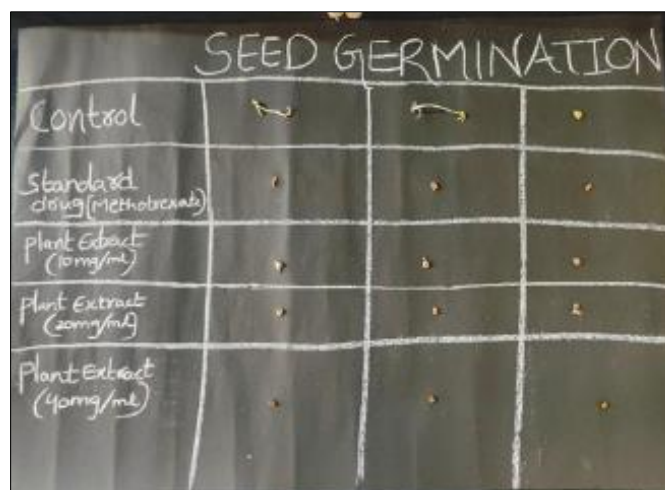 SEED GERMINATION
Control
Standard
drug (Methotrexate)
Plant Extract
(10mg/ml)
Plant Extract
(20mg/ml)
Plant Extract
(40mg/ml)